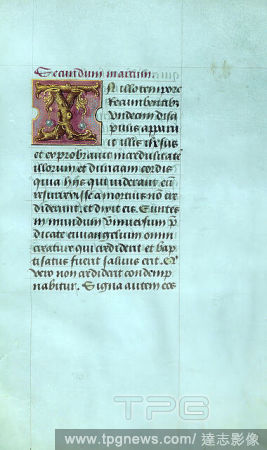 Secundum marcum.
In illo tempore
Recumbentibus
vndecim disci
pulis apparu
it illis ihesus
et exprobrauit incredulitate
illorum et duriciam cordis
quia hijs qui viderant eum
resurrexisse a mortuis non cre
diderunt. et dixit eis. Euntes
in mundum vniuersum p
dicate euuangelium omni
creature qui crediderit et bap
tisatus fuerit saluus erit. Qui
vero non crediderit condemp
nabitur. Signa autem eos
TPG
www.tpgnews.com / 達志影像